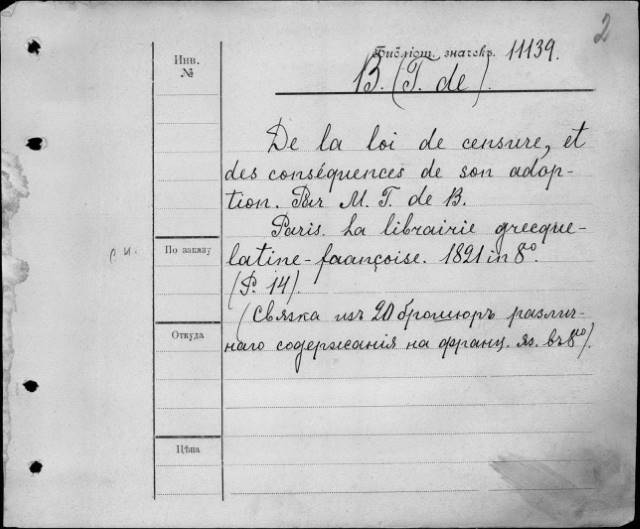 2
Библіот. значекъ 11139.
Инв.
№
B. (T. de).
De la loi de censure, et
des conséquences de son adop-
tion. Par M. T. de B.
Paris. La librairie grecque-
с. и.
По заказу
latine-faançoise. 1821 in 8º
(P. 14).
(Связка изъ 20 брошюръ различ-
Откуда
наго содержанія на франц. яз. въ 8º).
Цѣна